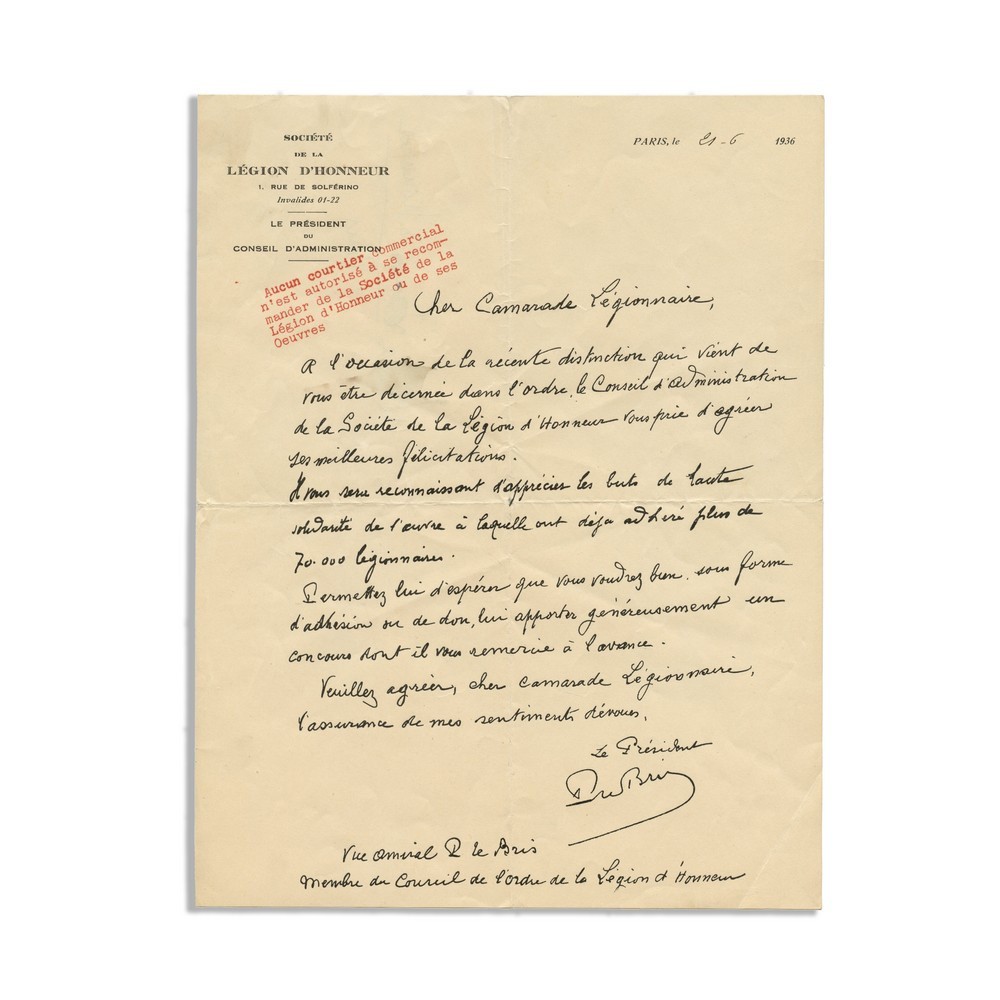 SOCIÉTÉ
DE LA
LÉGION D'HONNEUR
1, RUE DE SOLFÉRINO
Invalides 01-22
LE PRÉSIDENT
DU
CONSEIL D'ADMINISTRATION
PARIS, le 21-6 1936
Aucun courtier commercial
n'est autorisé à se recom-
mander de la Société de la
Légion d'Honneur ou de ses
Oeuvres
Cher Camarade Légionnaire,
A l'occasion de la récente distinction qui vient de
vous être décernée dans l'ordre, le Conseil d'Administration
de la Société de la Légion d'Honneur vous prie d'agréer
ses meilleures félicitations.
Il vous sera reconnaissant d'apprécier les buts de haute
solidarité de l'œuvre à laquelle ont déja adhéré plus de
70.000 légionnaires.
Permettez lui d'espérer que vous voudrez bien, sous forme
d'adhésion ou de don, lui apporter généreusement un
concours dont il vous remercie à l'avance.
Veuillez agréer, cher Camarade Légionnaire,
l'assurance de mes sentiments dévoués.
Le Président
P le Bris
Vice amiral P le Bris
Membre du Conseil de l'ordre de la Légion d'Honneur